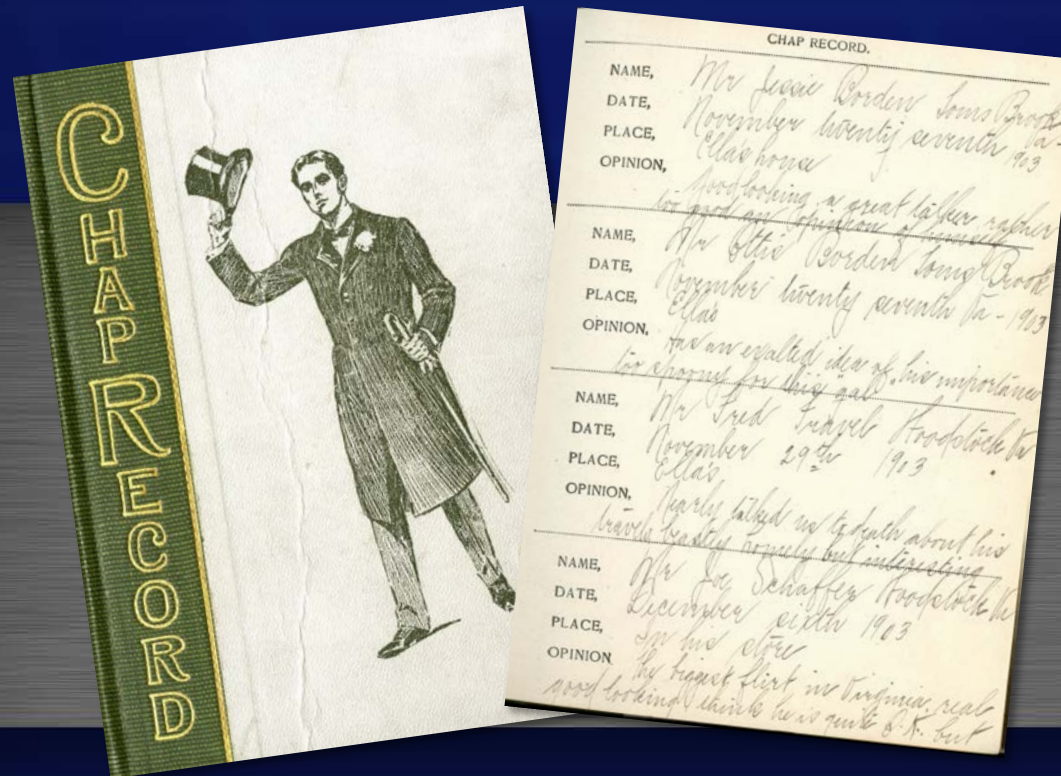 CHAP RECORD
CHAP RECORD.
NAME, Mr Jessie Borden Toms Brook
Va-
DATE, November twenty seventh 1903
PLACE, Ella's home
OPINION, good looking, a great talker rather
too good an opinion of himself
NAME, Mr Ottie Borden Toms Brook
DATE, November twenty seventh Va - 1903
PLACE, Ellas
OPINION, Has an exalted idea of his importance
too spoony for this gal
NAME, Mr Fred Fravel Woodstock Va
DATE, November 29th 1903
PLACE, Ella's
OPINION, Nearly talked us to death about his
travels beastly homely but interesting
NAME, Mr Joe Schaffer Woodstock Va
DATE, December sixth 1903
PLACE, In his store
OPINION the biggest flirt in Virginia. real
good looking thinks he is quite O.K. but